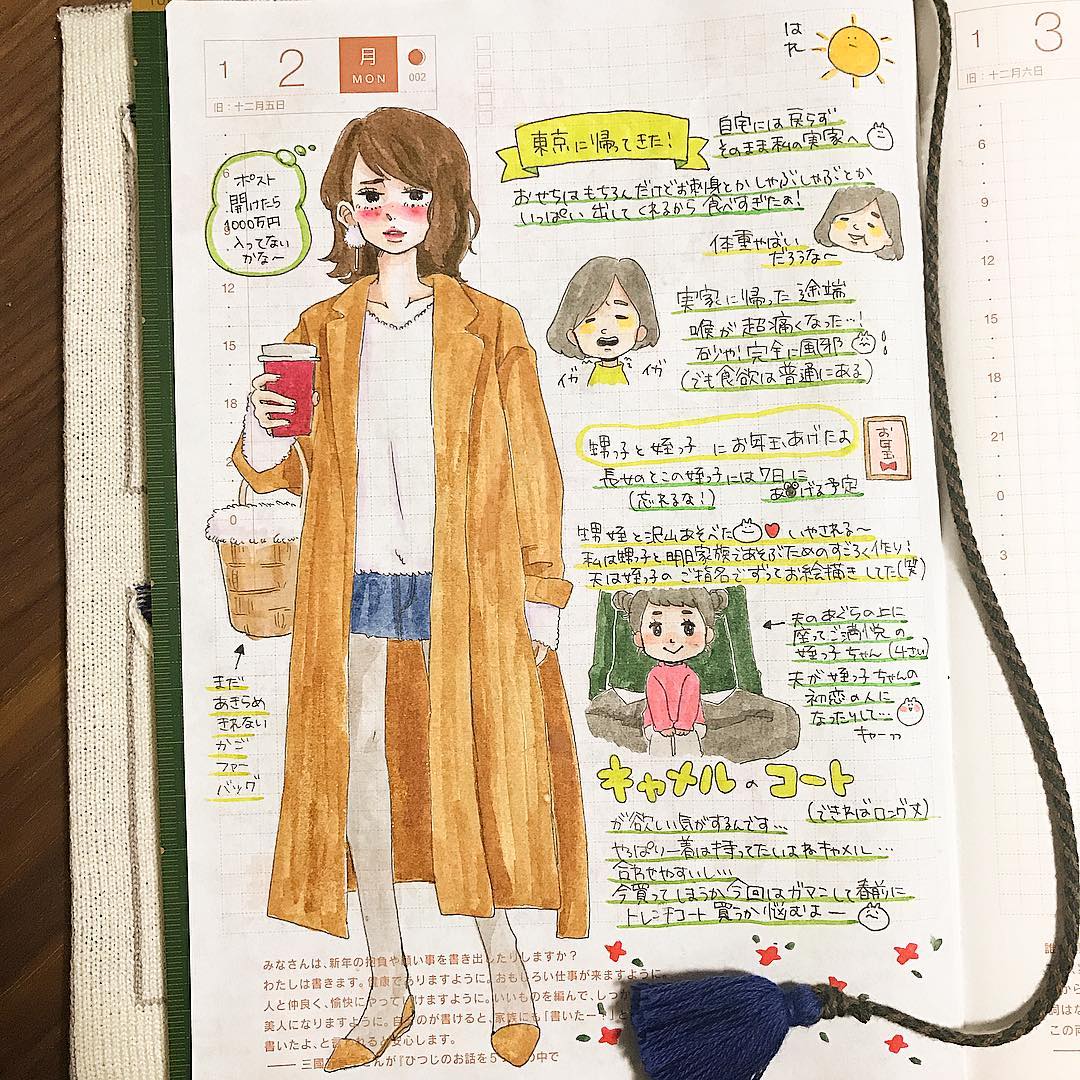 1
2
月
MON
002
旧：十二月五日
はれ
1
3
旧：十二月六日
東京に帰ってきた！
自宅には戻らず
そのまま私の実家へ
おせちはもちろんだけどお刺身とかしゃぶしゃぶとか
いっぱい出してくれるから食べすぎたぁ！
体重やばい
だろうな〜
ポスト
開けたら
1000万円
入ってない
かな〜
実家に帰った途端
喉が超痛くなった…！
完全に風邪
(でも食欲は普通にある)
イガ
イガ
甥っ子と姪っ子にお年玉あげたよ
お年玉
長女のとこの姪っ子には7日に
(忘れるな！)
あげる予定
甥姪と沢山あそべた
いやされる〜
私は甥っ子と明日家族であそぶためのすごろく作り！
夫は姪っ子のご指名でずっとお絵描きしてた(笑)
夫のあぐらの上に
座ってご満悦の
姪っ子ちゃん(4さい)
夫が姪っ子ちゃんの
初恋の人に
なったりして…
キャーっっ
まだ
あきらめ
きれない
かご
ファー
バッグ
キャメルのコート
(できればロング丈)
が欲しい気がするんです…
やっぱり一着は持ってたいよねキャメル…
合わせやすいし…
今買ってしまうか今回はガマンして春前に
トレンチコート買うか悩むよー
6
9
12
15
18
21
0
3
12
15
18
0
みなさんは、新年の抱負や願い事を書き出したりしますか？
わたしは書きます。健康でありますように。おもしろい仕事が来ますように。
人と仲良く、愉快にやって いけますように。いいものを編んで、しっか
美人になりますように。自 のが書けると、家族にも「書いたー！」と
書いたよ、と 安心します。
—— 三國 さんが『ひつじのお話を5 の中で